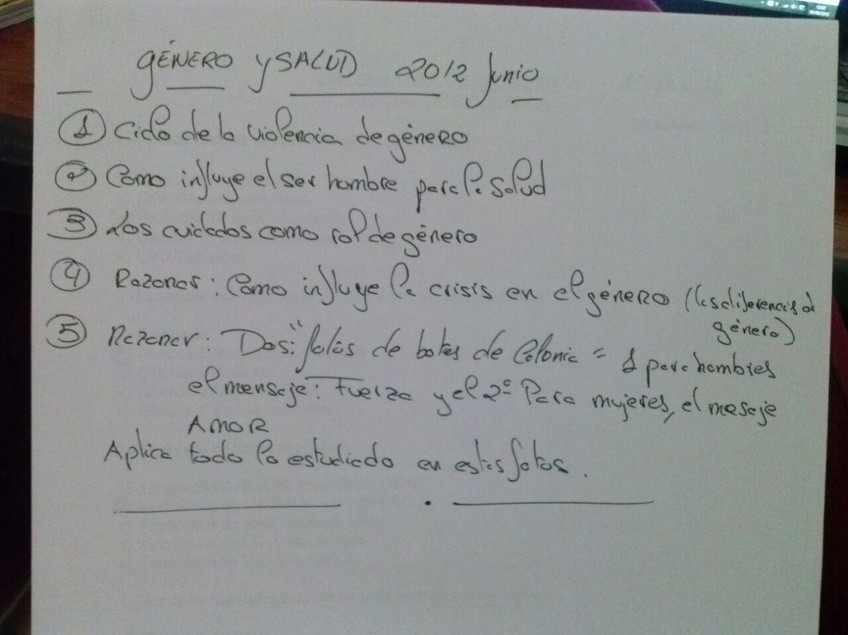 GÉNERO y SALUD 2012 Junio
① Ciclo de la violencia de género
② Como influye el ser hombre para la salud
③ Los cuidados como rol de género
④ Razonar: Como influye la crisis en el género (las diferencias de
género)
⑤ Razonar: Dos: "fotos de botes de Colonia = 1 para hombres
el mensaje: Fuerza y el 2º Para mujeres, el mesaje
AMOR
Aplica todo lo estudiado en estas fotos.